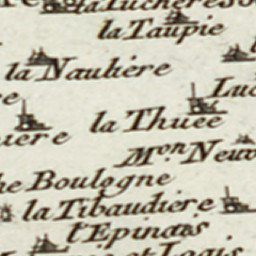 la Tuchere
la Taupie
la Naulière
la Thuée
Mon Neuv
he Boulogne
la Tibaudière
l'Epinais
et Logis